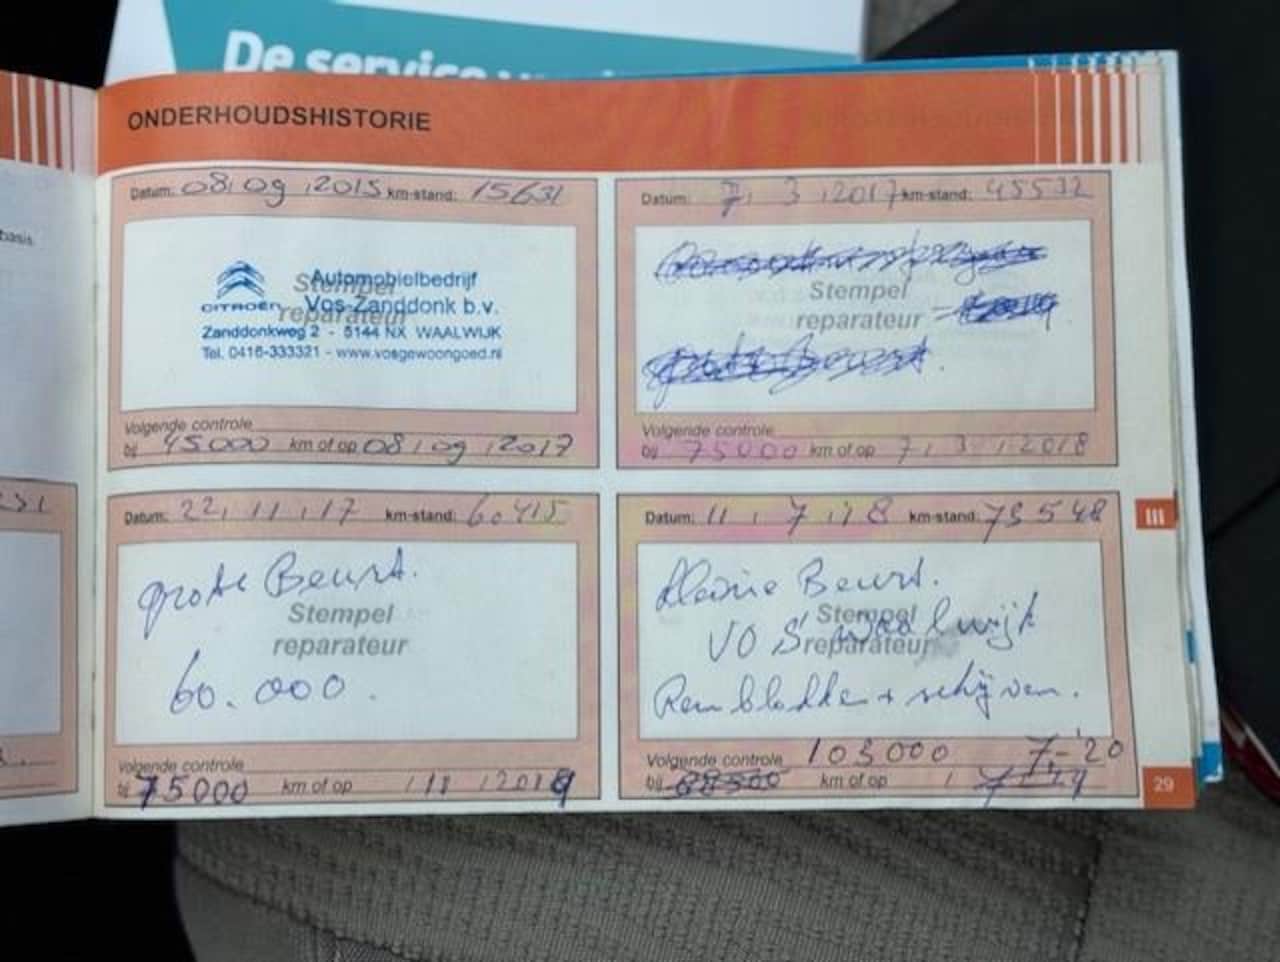 De service
ONDERHOUDSHISTORIE
basis
Datum: 08 09 2015 km-stand: 15631
CITROËN
Automobielbedrijf
Vos-Zanddonk b.v.
Stempel
reparateur
Zanddonkweg 2 - 5144 NX WAALWIJK
Tel. 0416-333321 - www.vosgewoongoed.nl
Volgende controle
bij 45000 km of op 08 09 2017
Datum: 7 3 2017 km-stand: 45532
Stempel
reparateur
Volgende controle
bij 75000 km of op 7 3 2018
Datum: 22 11 17 km-stand: 60415
grote Beurt.
Stempel
reparateur
60.000.
Volgende controle
bij 75000 km of op 11 2019
Datum: 11 7 18 km-stand: 75548
kleine Beurt.
Stempel
VOS Waalwijk
reparateur
Remblokken + schijven.
Volgende controle 105000 7-'20
bij km of op
III
29